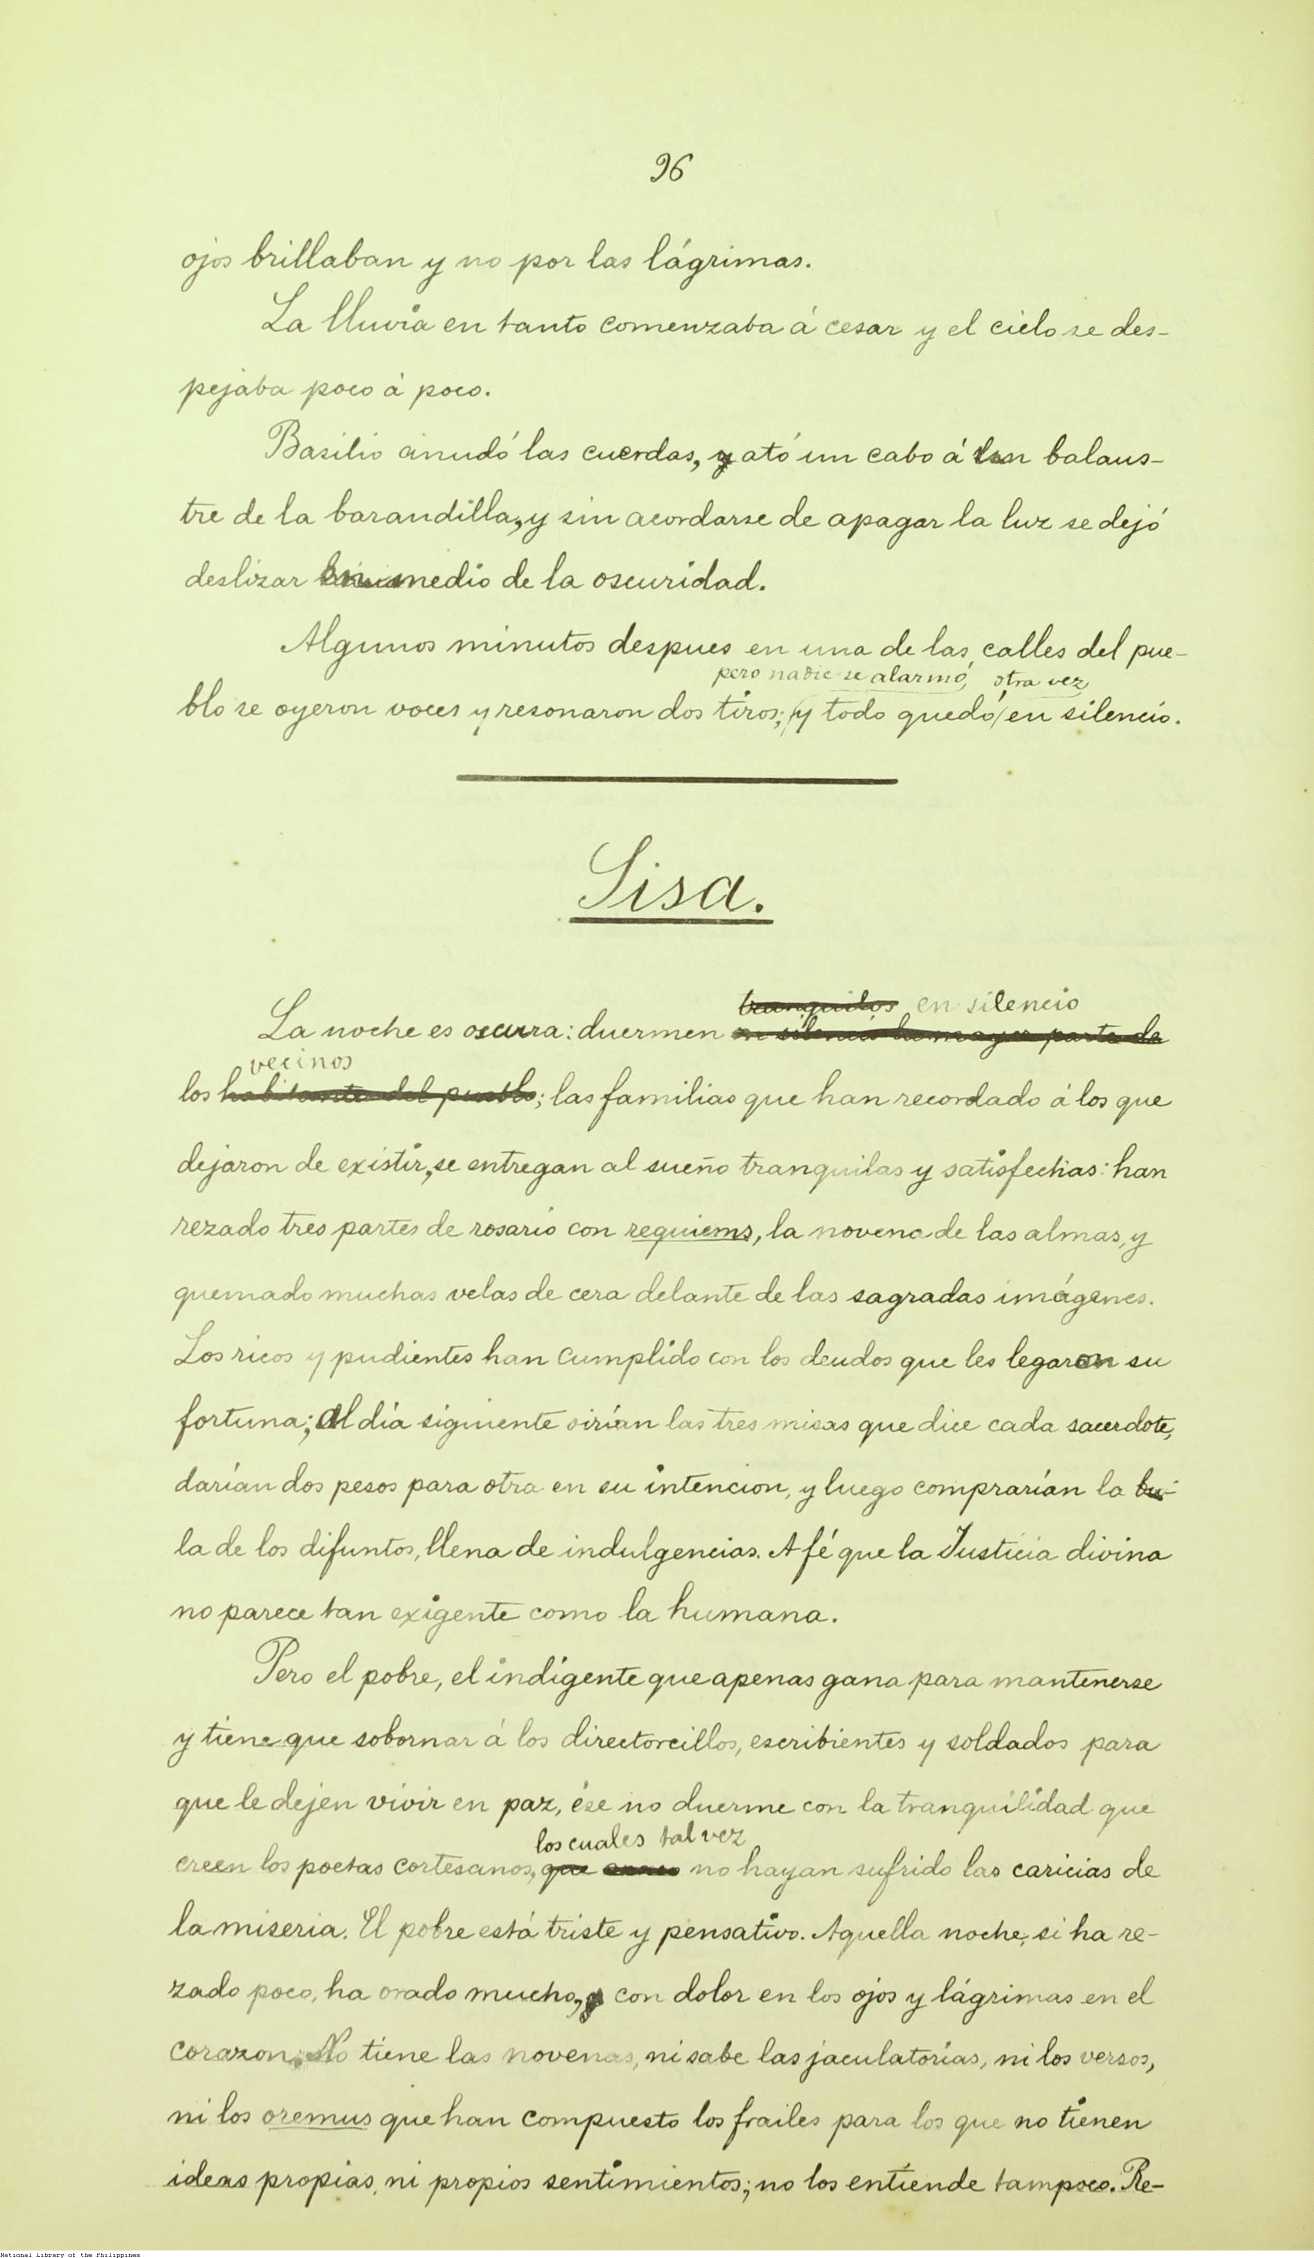 96
ojos brillaban y no por las lágrimas.
La lluvia en tanto comenzaba á cesar y el cielo se des-
pejaba poco á poco.
Basilio anudó las cuerdas, ató un cabo á un balaus-
tre de la barandilla, y sin acordarse de apagar la luz se dejó
deslizar en medio de la oscuridad.
Algunos minutos despues en una de las calles del pue-
pero nadie se alarmó, otra vez
blo se oyeron voces y resonaron dos tiros; y todo quedó en silencio.
Sisa.
tranquilos en silencio
La noche es oscura: duermen en silencio la mayor parte de
vecinos
los habitantes del pueblo; las familias que han recordado á los que
dejaron de existir, se entregan al sueño tranquilas y satisfechas: han
rezado tres partes de rosario con requiems, la novena de las almas, y
quemado muchas velas de cera delante de las sagradas imágenes.
Los ricos y pudientes han cumplido con los deudos que les legaron su
fortuna; al día siguiente oirían las tres misas que dice cada sacerdote,
darían dos pesos para otra en su intencion, y luego comprarían la bu-
la de los difuntos, llena de indulgencias. A fé que la Justicia divina
no parece tan exigente como la humana.
Pero el pobre, el indigente que apenas gana para mantenerse
y tiene que sobornar á los directorcillos, escribientes y soldados para
que le dejen vivir en paz, ése no duerme con la tranquilidad que
los cuales tal vez
creen los poetas cortesanos, que no hayan sufrido las caricias de
la miseria. El pobre está triste y pensativo. Aquella noche, si ha re-
zado poco, ha orado mucho, con dolor en los ojos y lágrimas en el
corazon. No tiene las novenas, ni sabe las jaculatorias, ni los versos,
ni los oremus que han compuesto los frailes para los que no tienen
ideas propias, ni propios sentimientos; no los entiende tampoco. Re-
National Library of the Philippines